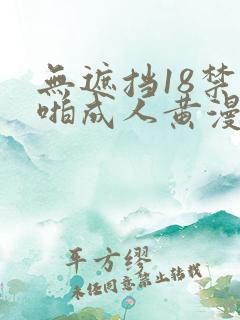 無遮挡18禁
啪成人黄漫
平方缪
未经同意禁止转载